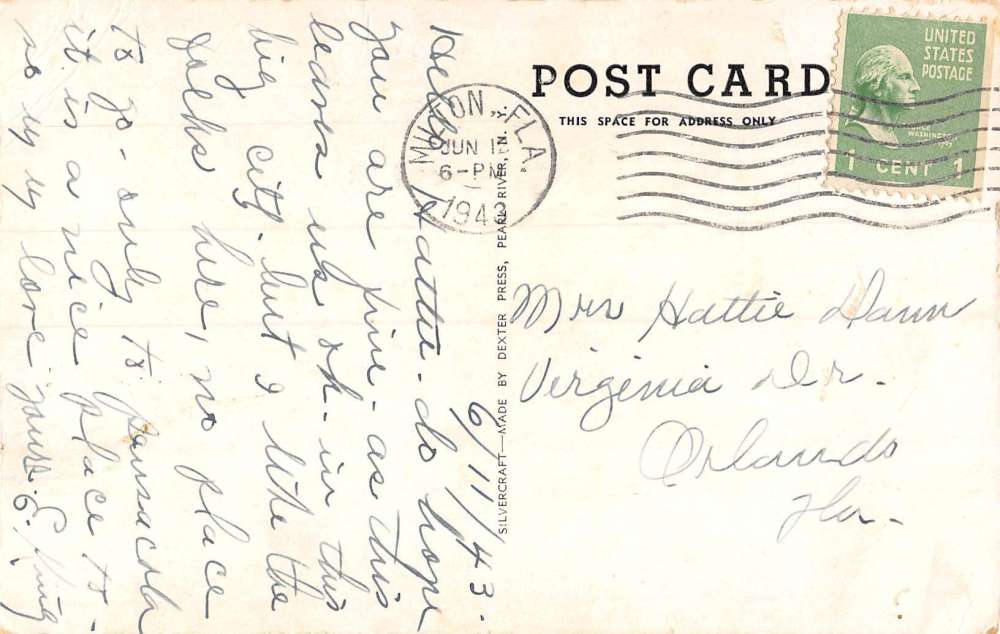 POST CARD
THIS SPACE FOR ADDRESS ONLY
UNITED
STATES
POSTAGE
WASHINGTON
1 CENT 1
MILTON, FLA.
JUN 1
6-PM
1943
SILVERCRAFT—MADE BY DEXTER PRESS, PEARL RIVER, N. Y.
6/11/43-
Hello Hattie - do hope
you are fine - as this
leaves us ok - in this
big city. but I like the
folks here, no place
to go - only to Pensacola
it is a nice place to
so
love yours E. King
Mrs Hattie Dann
Virginia Dr.
Orlando
Fla.